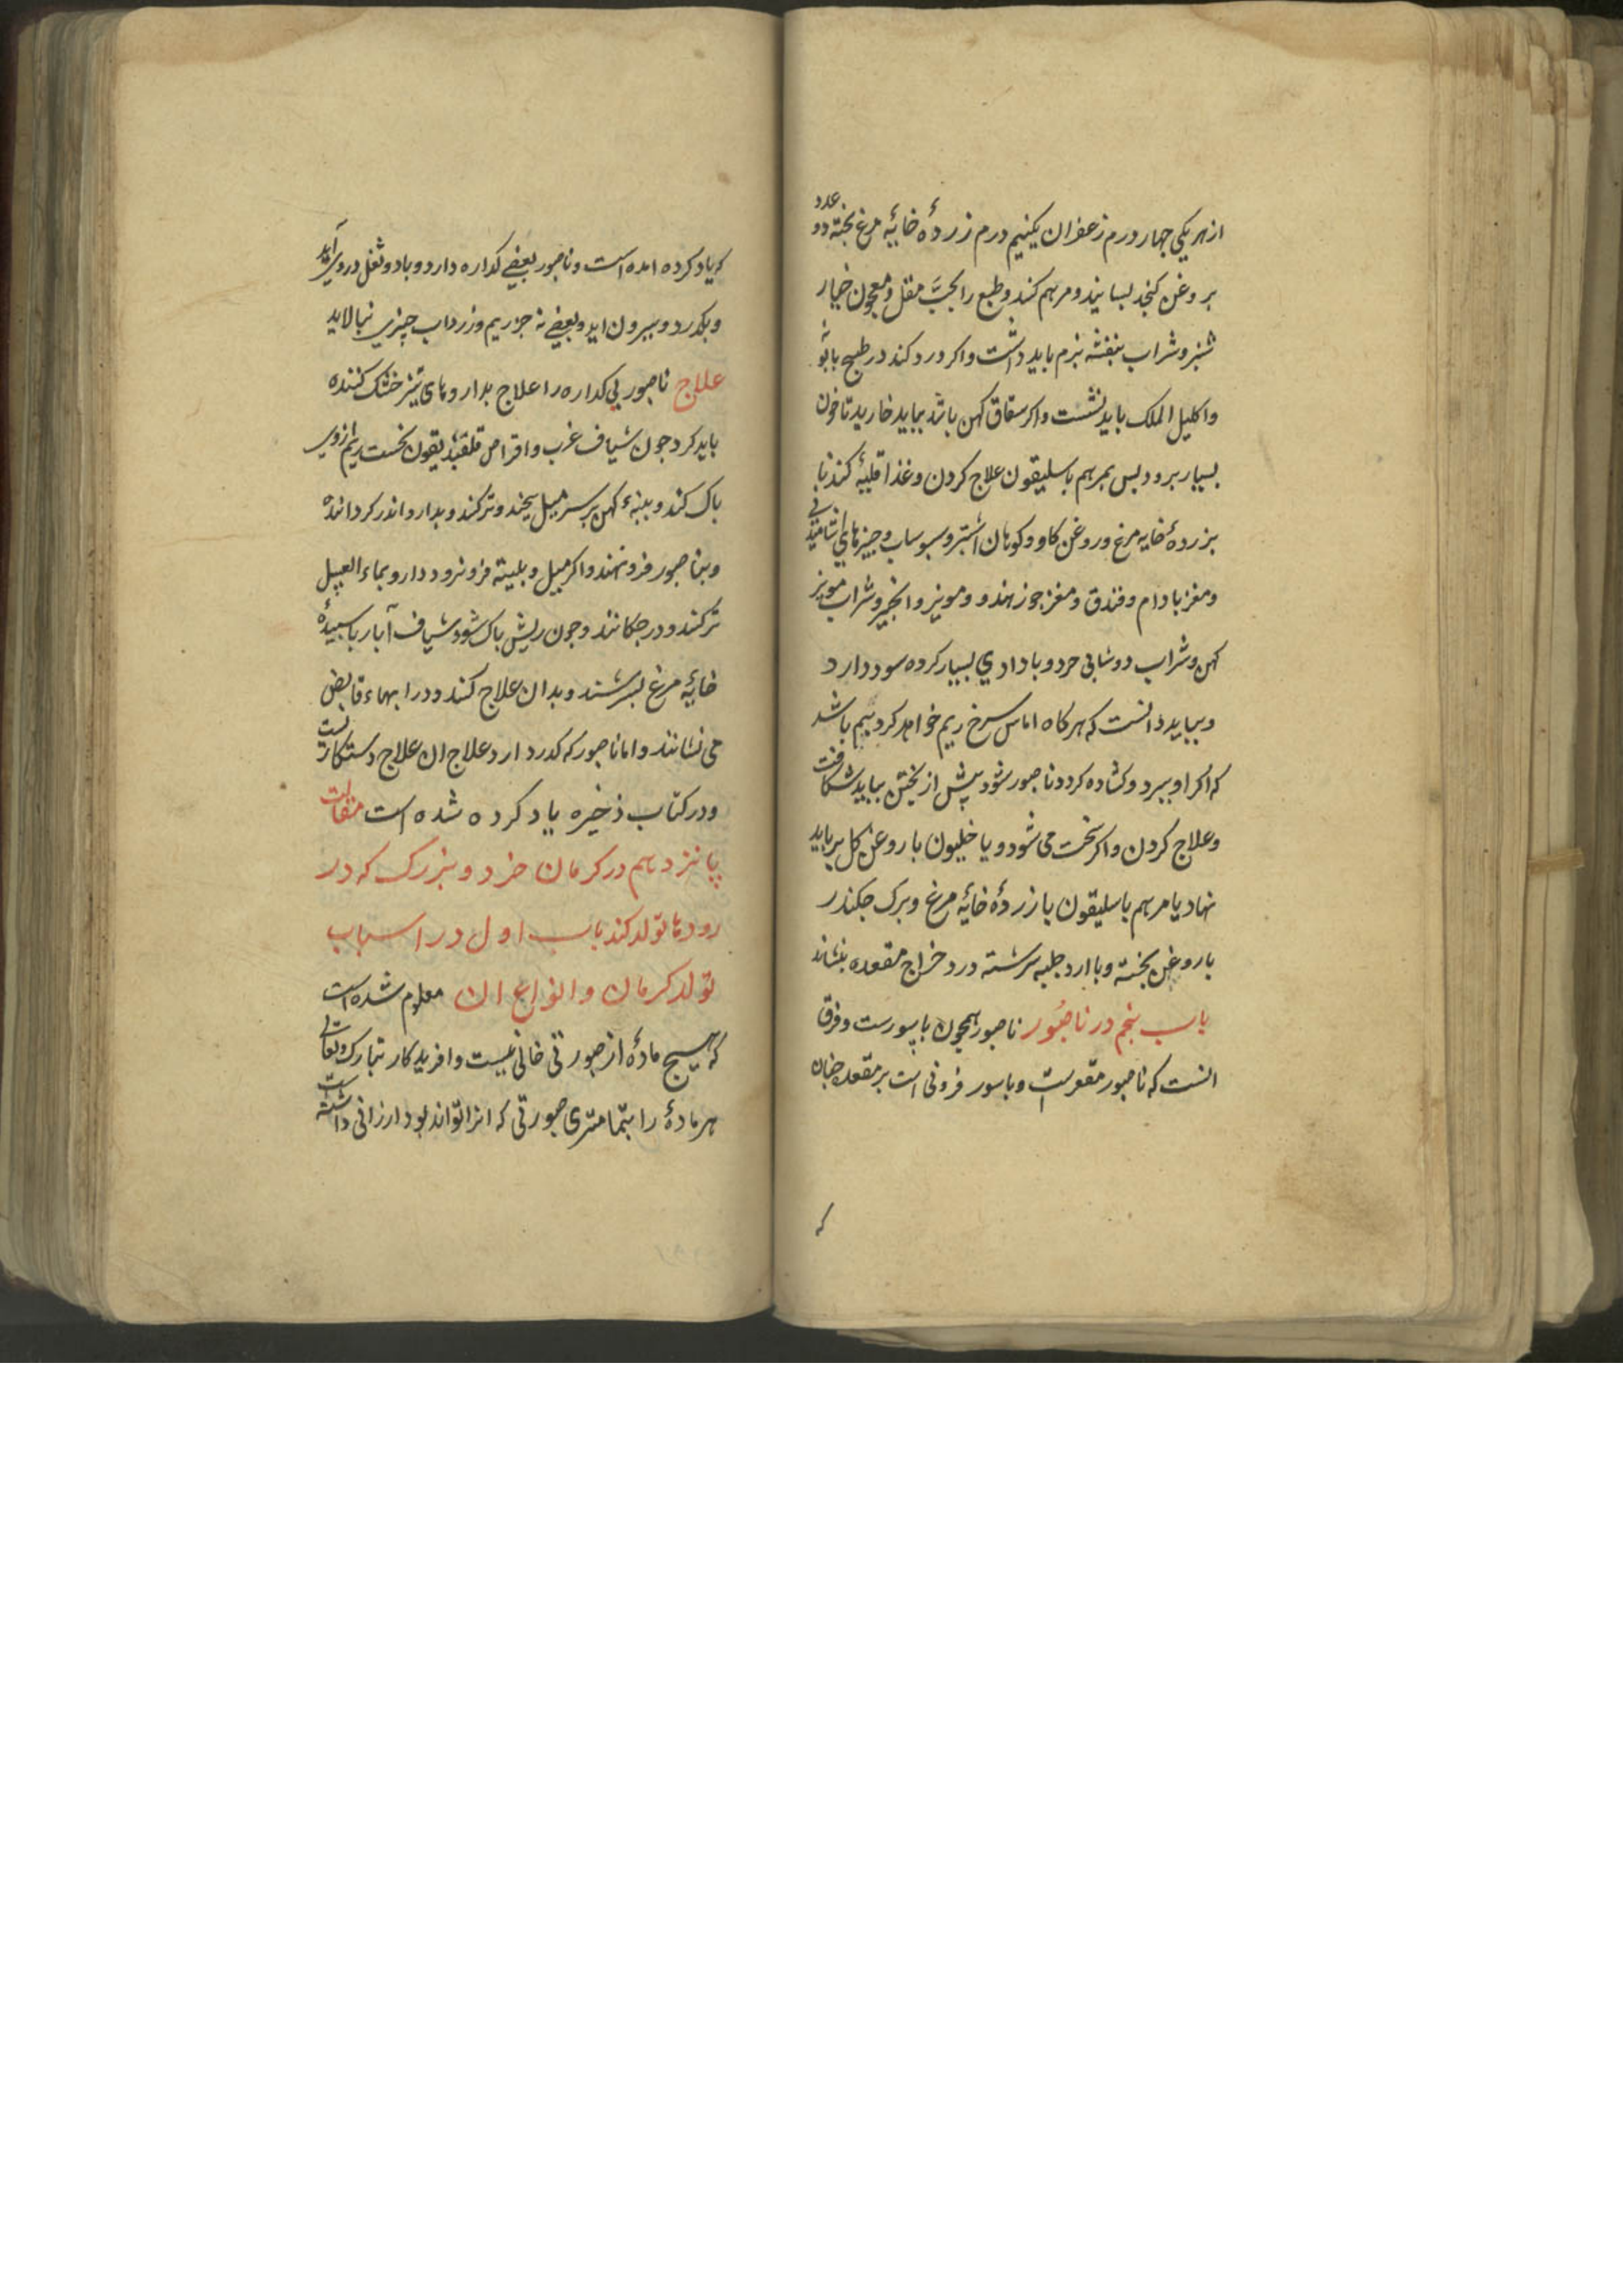 از هر یکی چهار درم زعفران یکنیم درم زردهٔ خایهٔ مرغ پخته دو عدد
بروغن کنجد بسایند و مرهم کنند و طبع را بحبّ مقل و معجون خیار
شنبر و شراب بنفشه نرم باید داشت و اکر درد کند در طبیخ بابونه
و اکلیل الملک باید نشست و اکر سقاق کهن باشد بباید خارید تا خون
بسیار برود بس بمرهم باسلیقون علاج کردن و غذا قلیهٔ کندنا
بزردهٔ خایه مرغ و روغن کاو و کوهان اشتر و سبوساب و چیزهای
و مغز بادام و فندق و مغز جوز هندو و مویز و انجیر و شراب مویز
کهن و شراب دوشابی سود دارد
و بباید دانست که هرکاه اماس سرخ ریم خواهد کرد بیم باشد
که اکر او ببرد و کشاده کردد ناصور شود پیش از پختن بباید شکافت
و علاج کردن و اکر سخت می شود و یا خلیون با روغن کل بر باید
نهاد یا مرهم باسلیقون یا زردهٔ خایهٔ مرغ و برک چکندر
با روغن پخته و با ارد حلبه سرشته درد خراج مقعده بنشاند
باب پنجم در ناصُور ناصور همچون باسورست و فرق
انست که ناصور مقعرست و باسور فزونی است بر مقعده چنان
که
که یاد کرده امده است و ناصور بعضی کداره دارد و باد و ثفل در وی آید
و بکدرد و بیرون اید و بعضی نه جز ریم و زرداب چیزی نپالاید
علاج ناصور بی کداره را علاج بداروهای تیز خشک کننده
باید کرد چون شیاف غرب و اقراص قلقندیقون نخست ریم از وی
پاک کند و پنبهٔ کهن بر سر میل پیچند و تر کنند و بدارو اندر کردانند
و بناصور فرو نهند و اکر میل و بلیته فرو نرود دارو بماء العسل
تر کنند و در چکانند و چون ریش پاک شود شیاف آبار با سپیدهٔ
خایهٔ مرغ بسرشند و بدان علاج کنند و در ابهاء قابض
می نشانند و اما ناصور که کدر دارد علاج ان علاج دستکاریست
و در کتاب ذخیره یاد کرده شده است مقالت
پانزدهم در کرمان خرد و بزرک که در
رودها تولد کند باب اول در اسباب
تولد کرمان و انواع ان معلوم شده است
که هیچ مادهٔ از صورتی خالی نیست و افریدکار تبارک و تعالی
هر مادهٔ را بتمامتری صورتی که انرا تواند بود ارزانی داشته است